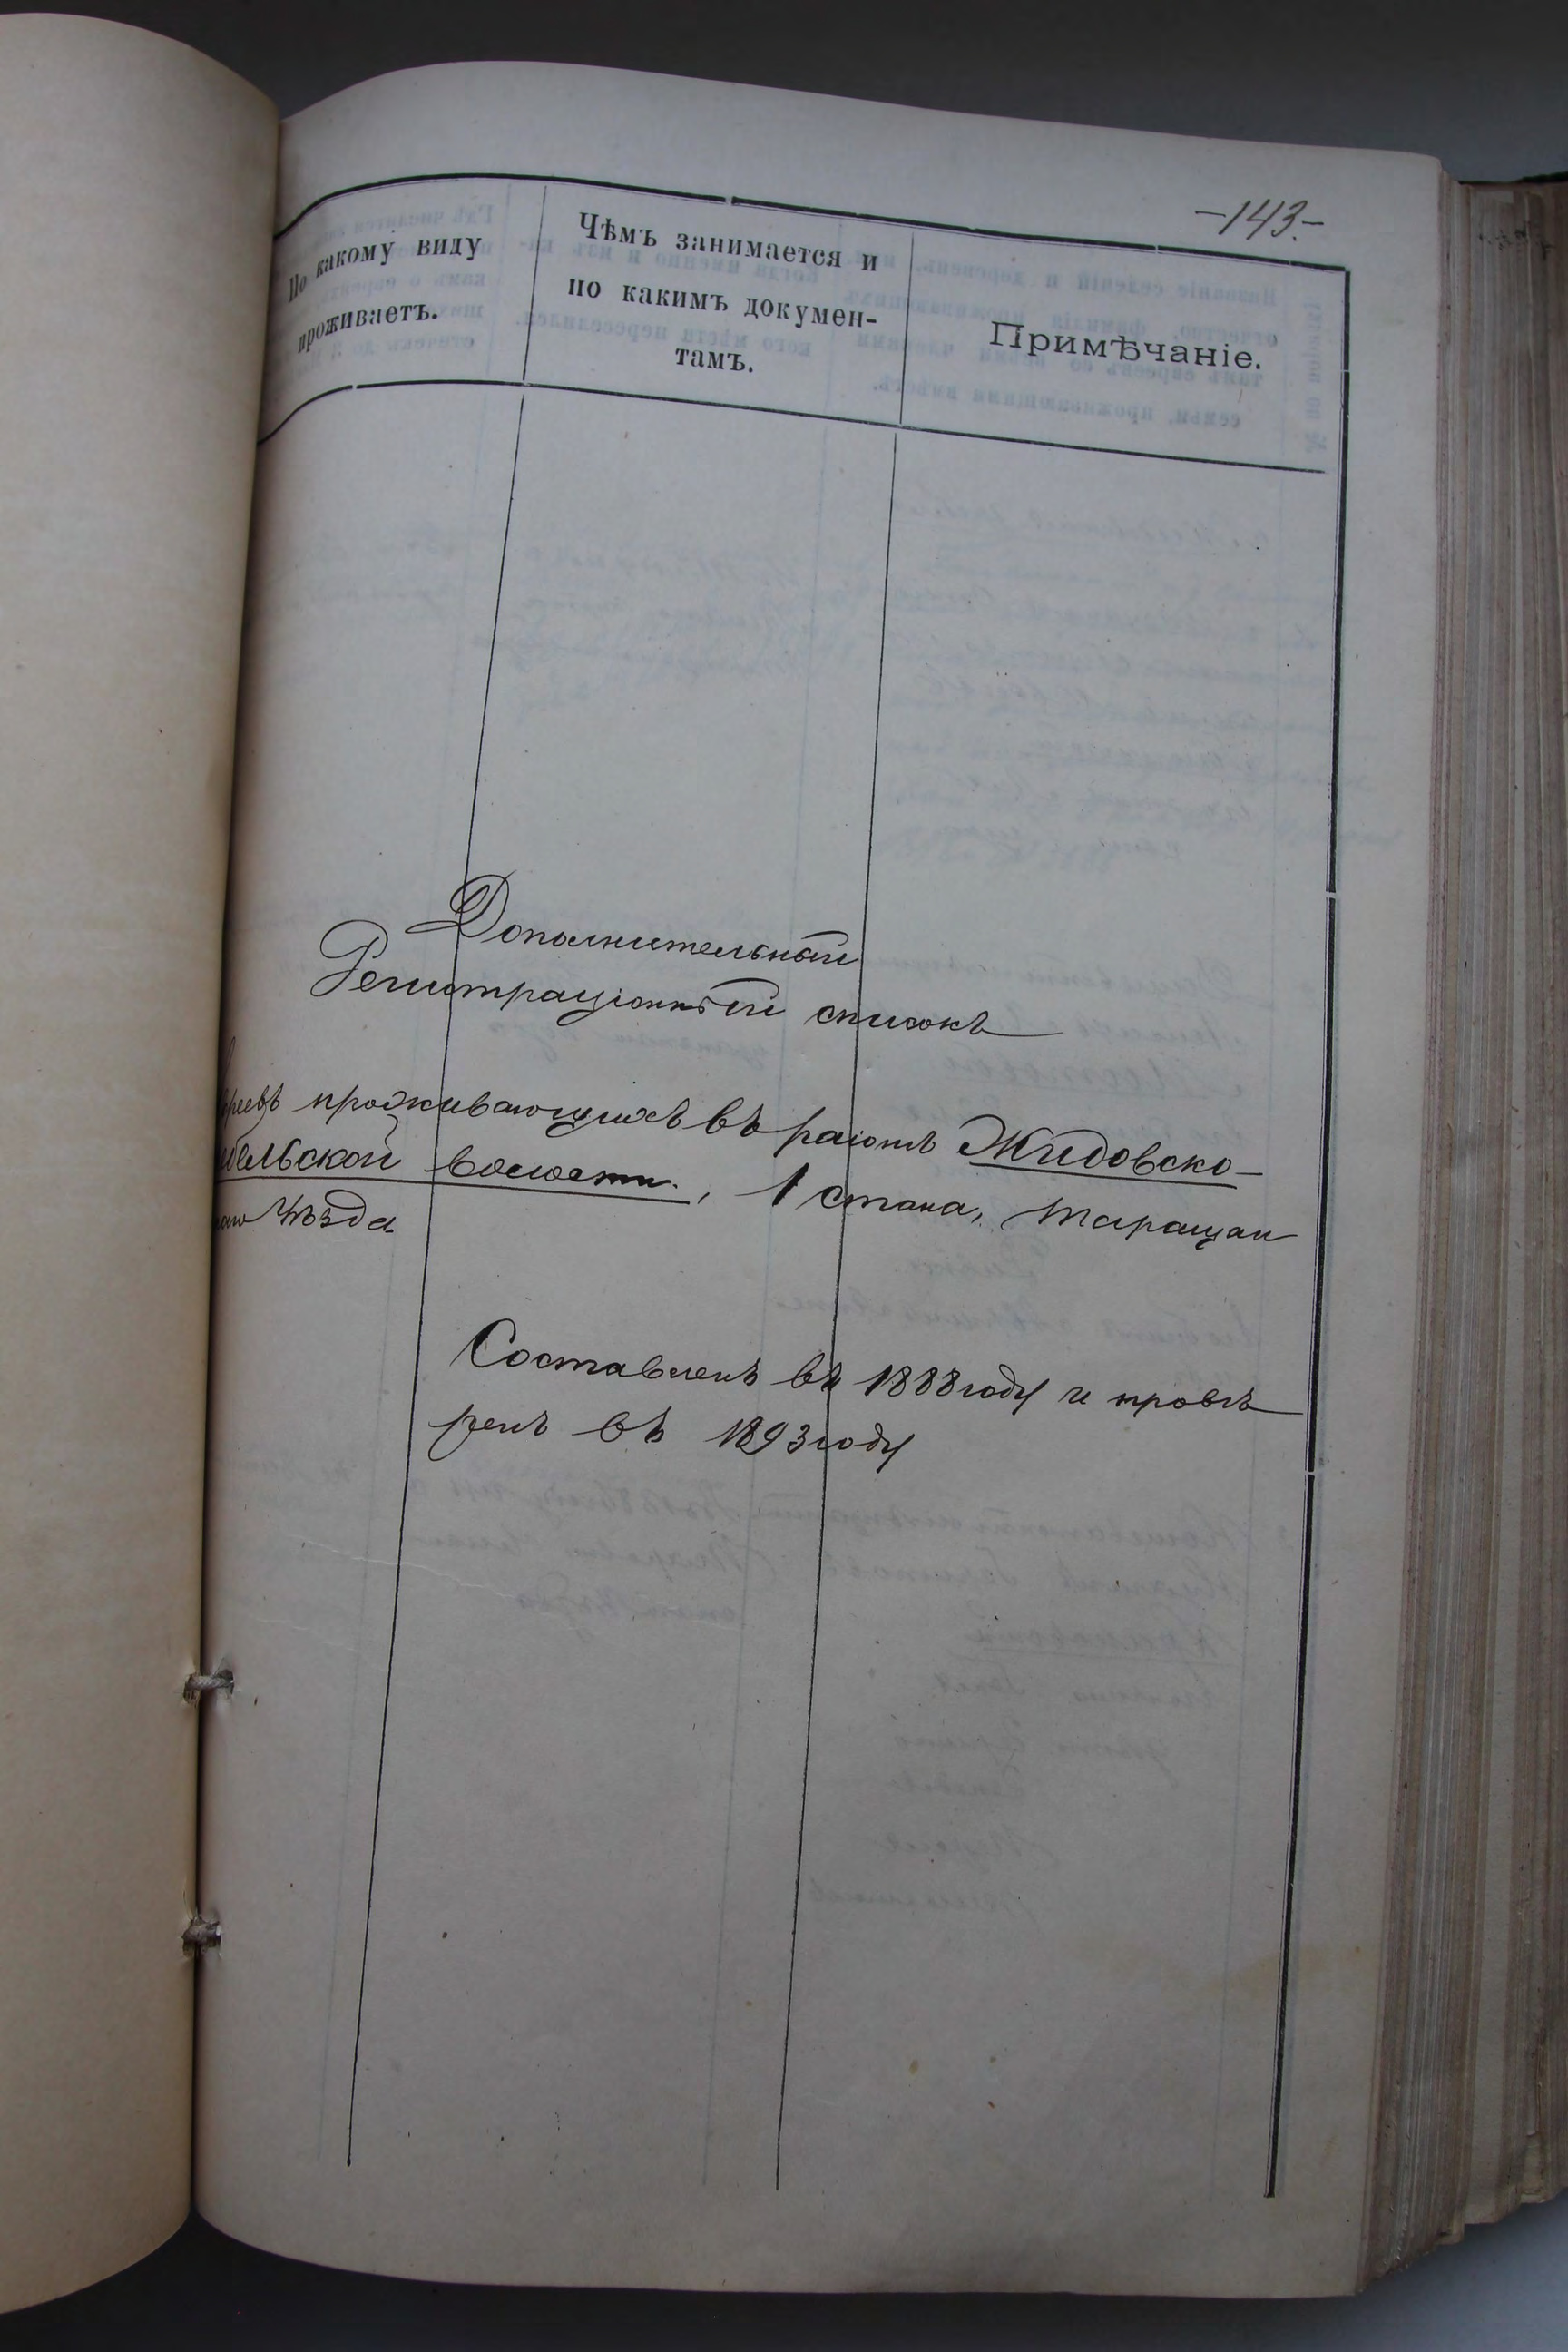 -143.-
По какому виду
проживаетъ.
Чѣмъ занимается и
по какимъ докумен-
тамъ.
Примѣчаніе.
Дополнительный
Регистраціонный списокъ
реевъ проживающихъ въ раіонѣ Жидовско-
бельской волости., 1 стана, Таращан
аго Уѣзда
Составленъ въ 1888 году и провѣ
ренъ въ 1893 году